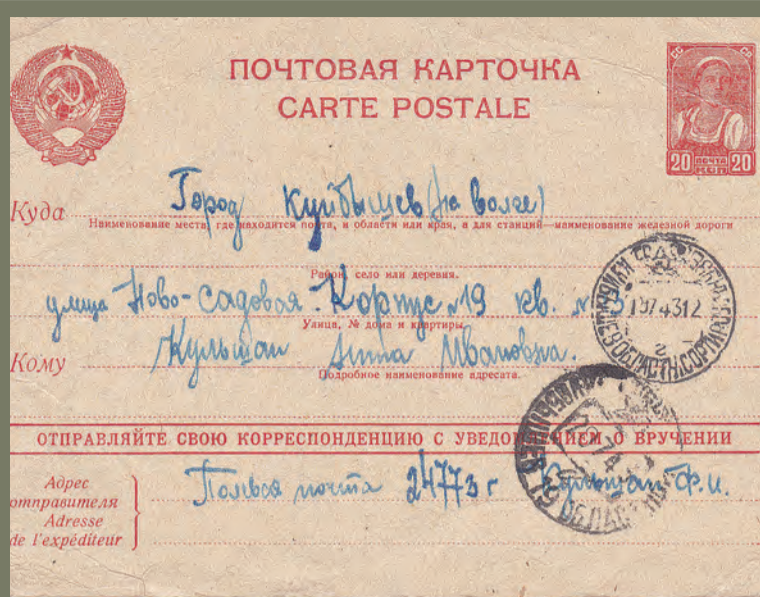 ПОЧТОВАЯ КАРТОЧКА
CARTE POSTALE
СС СР
20 ПОЧТА 20
КОП
Куда Город Куйбышев (на волге)
Наименование места, где находится почта, и области или края, а для станций—наименование железной дороги
Район, село или деревня.
улица Ново-Садовая. Корпус №19 кв. № 3
Улица, № дома и квартиры.
Кому Кульшан Анна Ивановна.
Подробное наименование адресата.
ОТПРАВЛЯЙТЕ СВОЮ КОРРЕСПОНДЕНЦИЮ С УВЕДОМЛЕНИЕМ О ВРУЧЕНИИ
Адрес
отправителя
Adresse
de l'expéditeur
почта 24773 г Кульшан Ф.И.